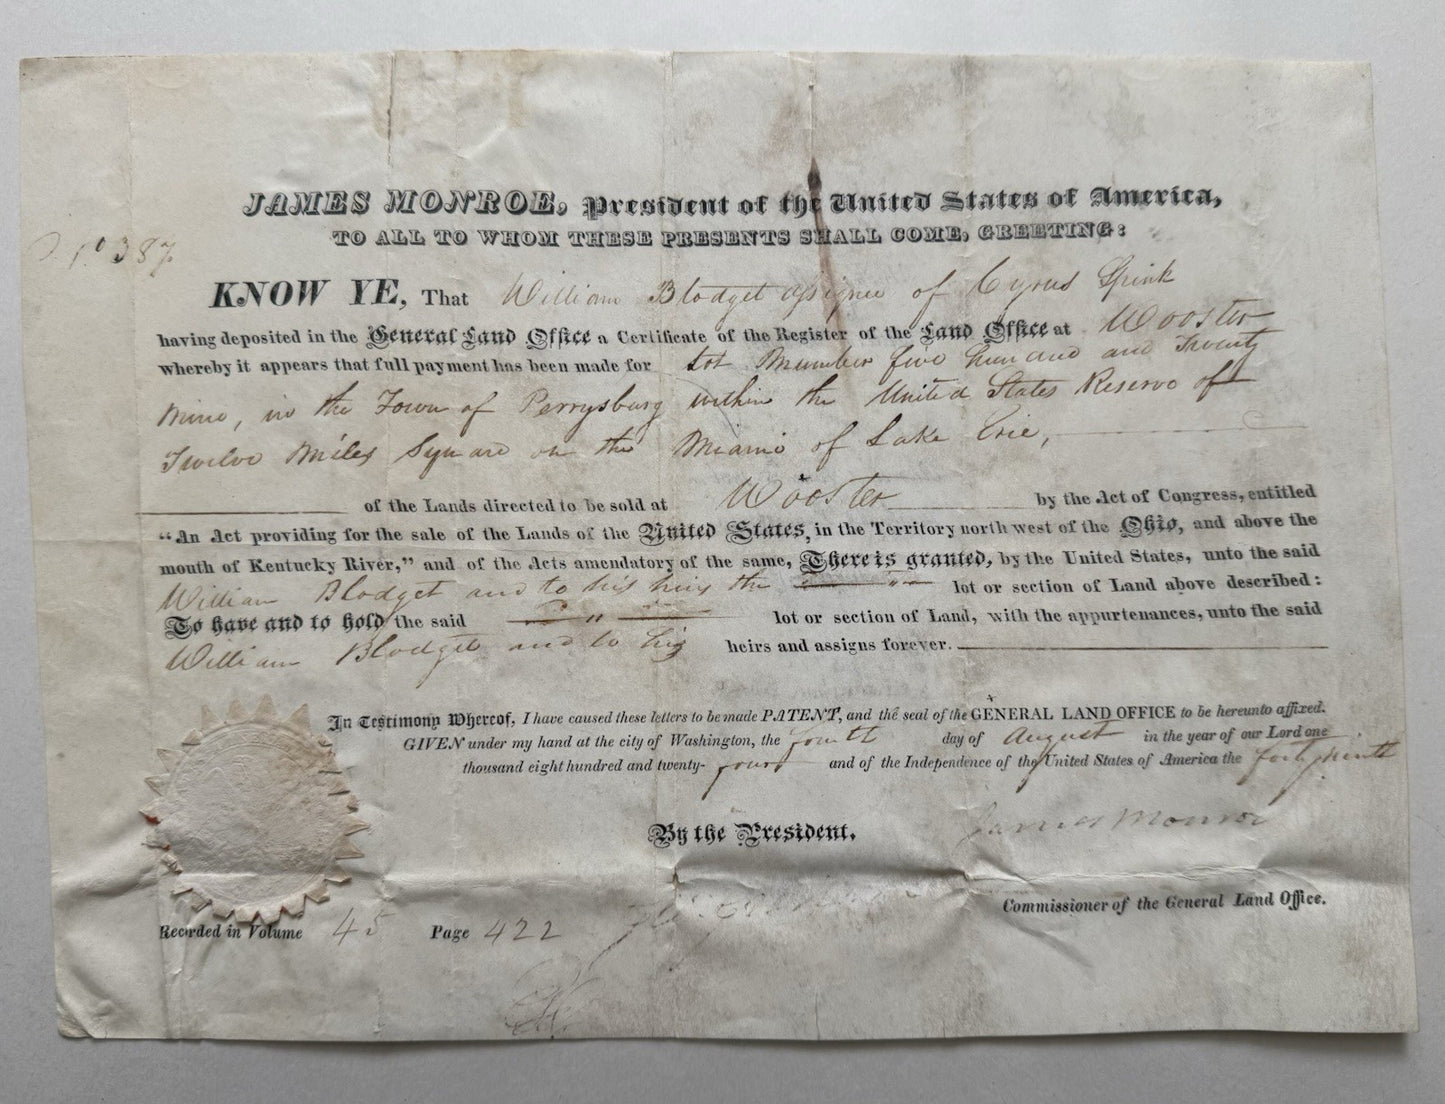 JAMES MONROE, President of the United States of America,
TO ALL TO WHOM THESE PRESENTS SHALL COME, GREETING:
No 387
KNOW YE, That William Blodget assignee of Cyrus Spink
having deposited in the General Land Office a Certificate of the Register of the Land Office at Wooster
whereby it appears that full payment has been made for Lot Number five hundred and Twenty
Nine, in the Town of Perrysburg within the United States Reserve of
Twelve Miles Square on the Miami of Lake Erie,
of the Lands directed to be sold at Wooster by the Act of Congress, entitled
“An Act providing for the sale of the Lands of the United States, in the Territory north west of the Ohio, and above the
mouth of Kentucky River,” and of the Acts amendatory of the same, There is granted, by the United States, unto the said
William Blodget and to his heirs the lot or section of Land above described:
To have and to hold the said lot or section of Land, with the appurtenances, unto the said
William Blodget and to his heirs and assigns forever.
In Testimony Whereof, I have caused these letters to be made PATENT, and the seal of the GENERAL LAND OFFICE to be hereunto affixed.
GIVEN under my hand at the city of Washington, the fourth day of August in the year of our Lord one
thousand eight hundred and twenty-four and of the Independence of the United States of America the forty ninth
By the President. James Monroe
Commissioner of the General Land Office.
Recorded in Volume 45 Page 422